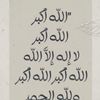 الله أكبر
الله أكبر
لا إله إلا الله
الله أكبر الله أكبر
ولله الحمد